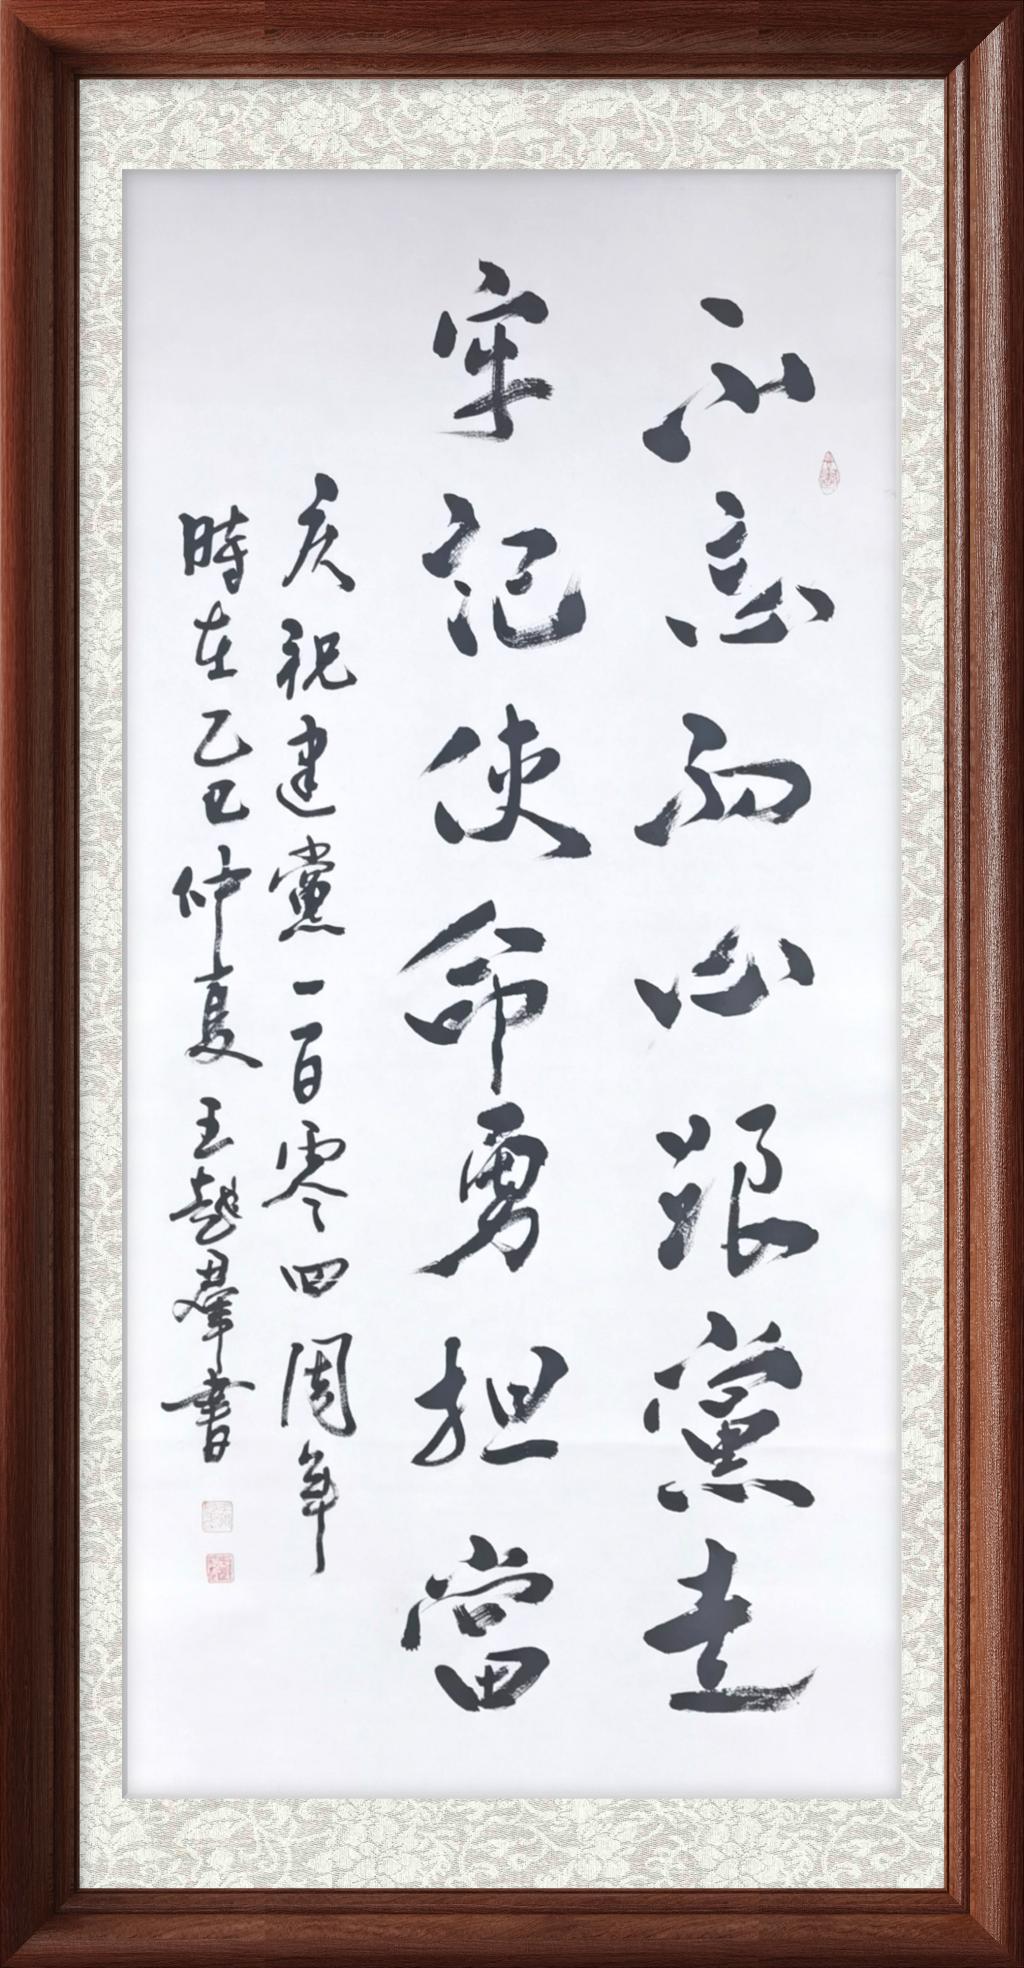 不忘初心跟黨走
牢記使命勇担當
庆祝建黨一百零四周年
時在乙巳仲夏王越群書